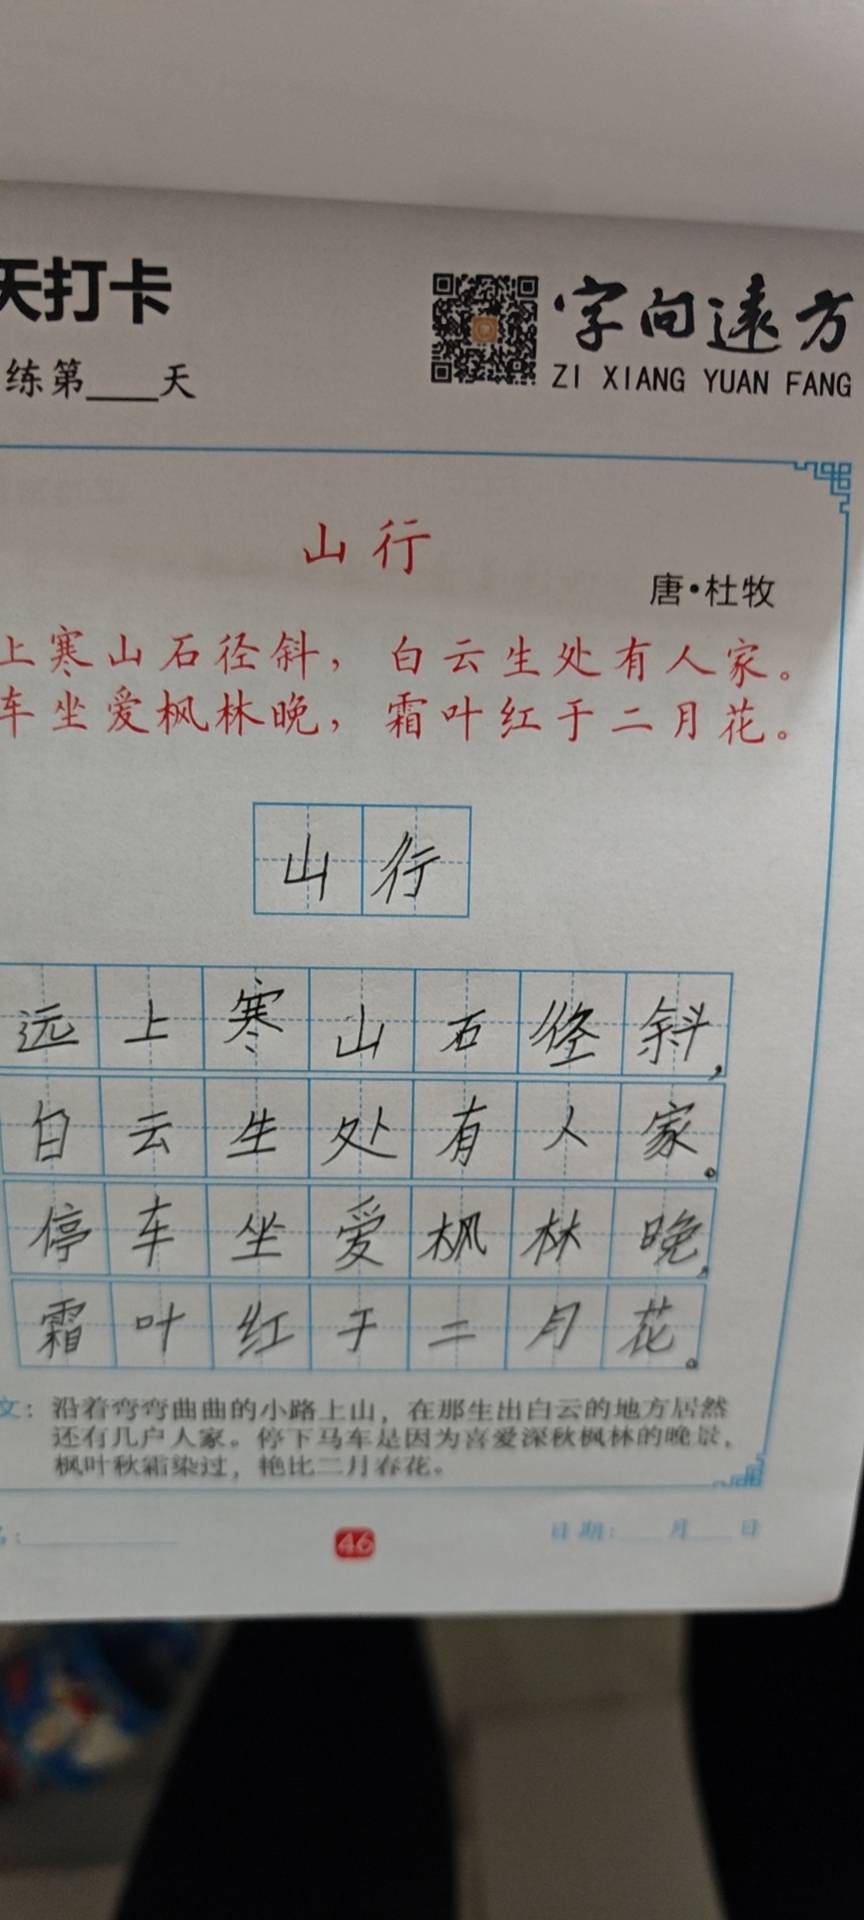 天打卡
练第____天
字向遠方
ZI XIANG YUAN FANG
山行
唐·杜牧
上寒山石径斜，白云生处有人家。
车坐爱枫林晚，霜叶红于二月花。
山行
远上寒山石径斜，
白云生处有人家。
停车坐爱枫林晚，
霜叶红于二月花。
文：沿着弯弯曲曲的小路上山，在那生出白云的地方居然
还有几户人家。停下马车是因为喜爱深秋枫林的晚景，
枫叶秋霜染过，艳比二月春花。
46
日期：___月___日